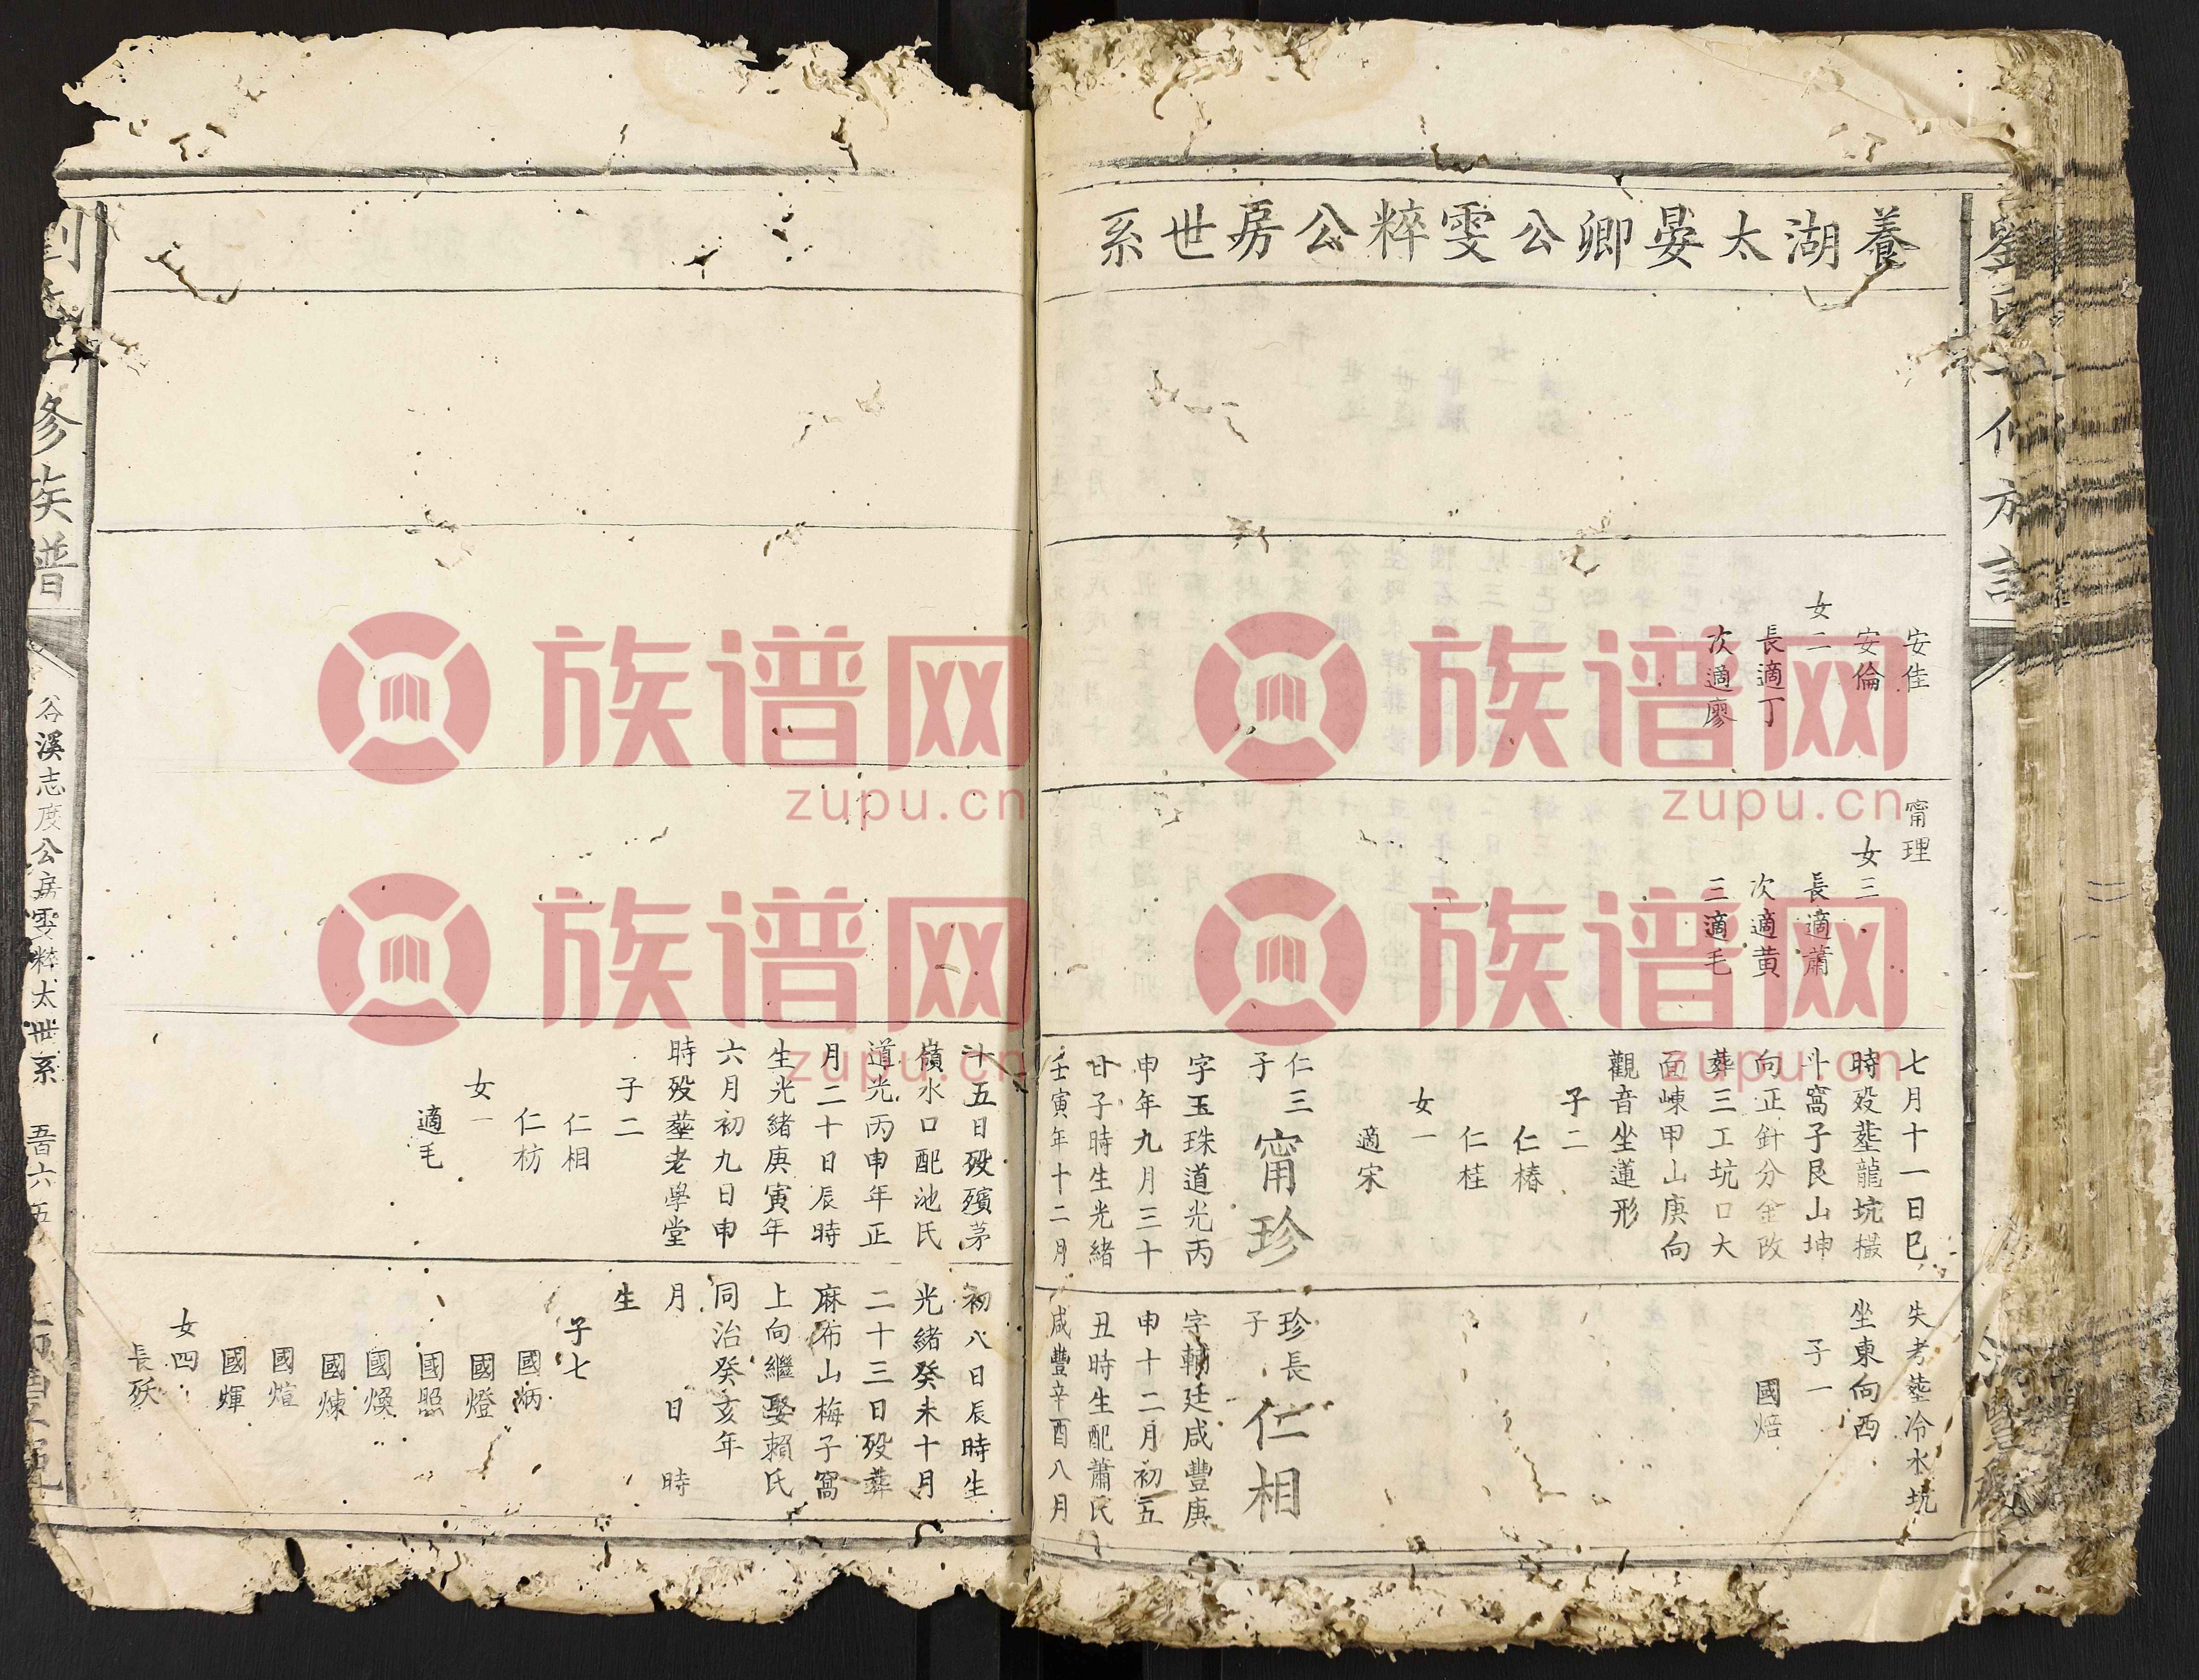 養湖太晏卿公雯粹公房世系
安佳
安倫
女二
長適丁
次適廖
甯理
女三
長適蕭
次適黄
三適毛
七月十一日巳
時殁塟龍坑撮
斗窩子艮山坤
向正針分金改
葬三工坑口大
面崠甲山庚向
觀音坐蓮形
子二
仁椿
仁桂
女一
適宋
仁三
子
甯珍
字玉珠道光丙
申年九月三十
廿子時生光緒
壬寅年十二月
失考塟冷水坑
坐東向西
子一
國焙
珍長
子
仁相
字輔廷咸豐庚
申十二月初五
丑時生配蕭氏
咸豐辛酉八月
十五日殁殯茅
嶺水口配池氏
道光丙申年正
月二十日辰時
生光緒庚寅年
六月初九日申
時殁塟老學堂
子二
仁相
仁枋
女一
適毛
初八日辰時生
光緒癸未十月
二十三日殁葬
麻布山梅子窩
上向繼娶賴氏
同治癸亥年
月 日 時
生
子七
國炳
國燈
國照
國煥
國煉
國煊
國輝
女四
長殀
修族譜
谷溪志度公房雯粹太世系
五百六五
族网 族谱网
zupu.cn
族谱网
zupu.cn
族谱网
zupu.cn
族谱网
zupu.cn